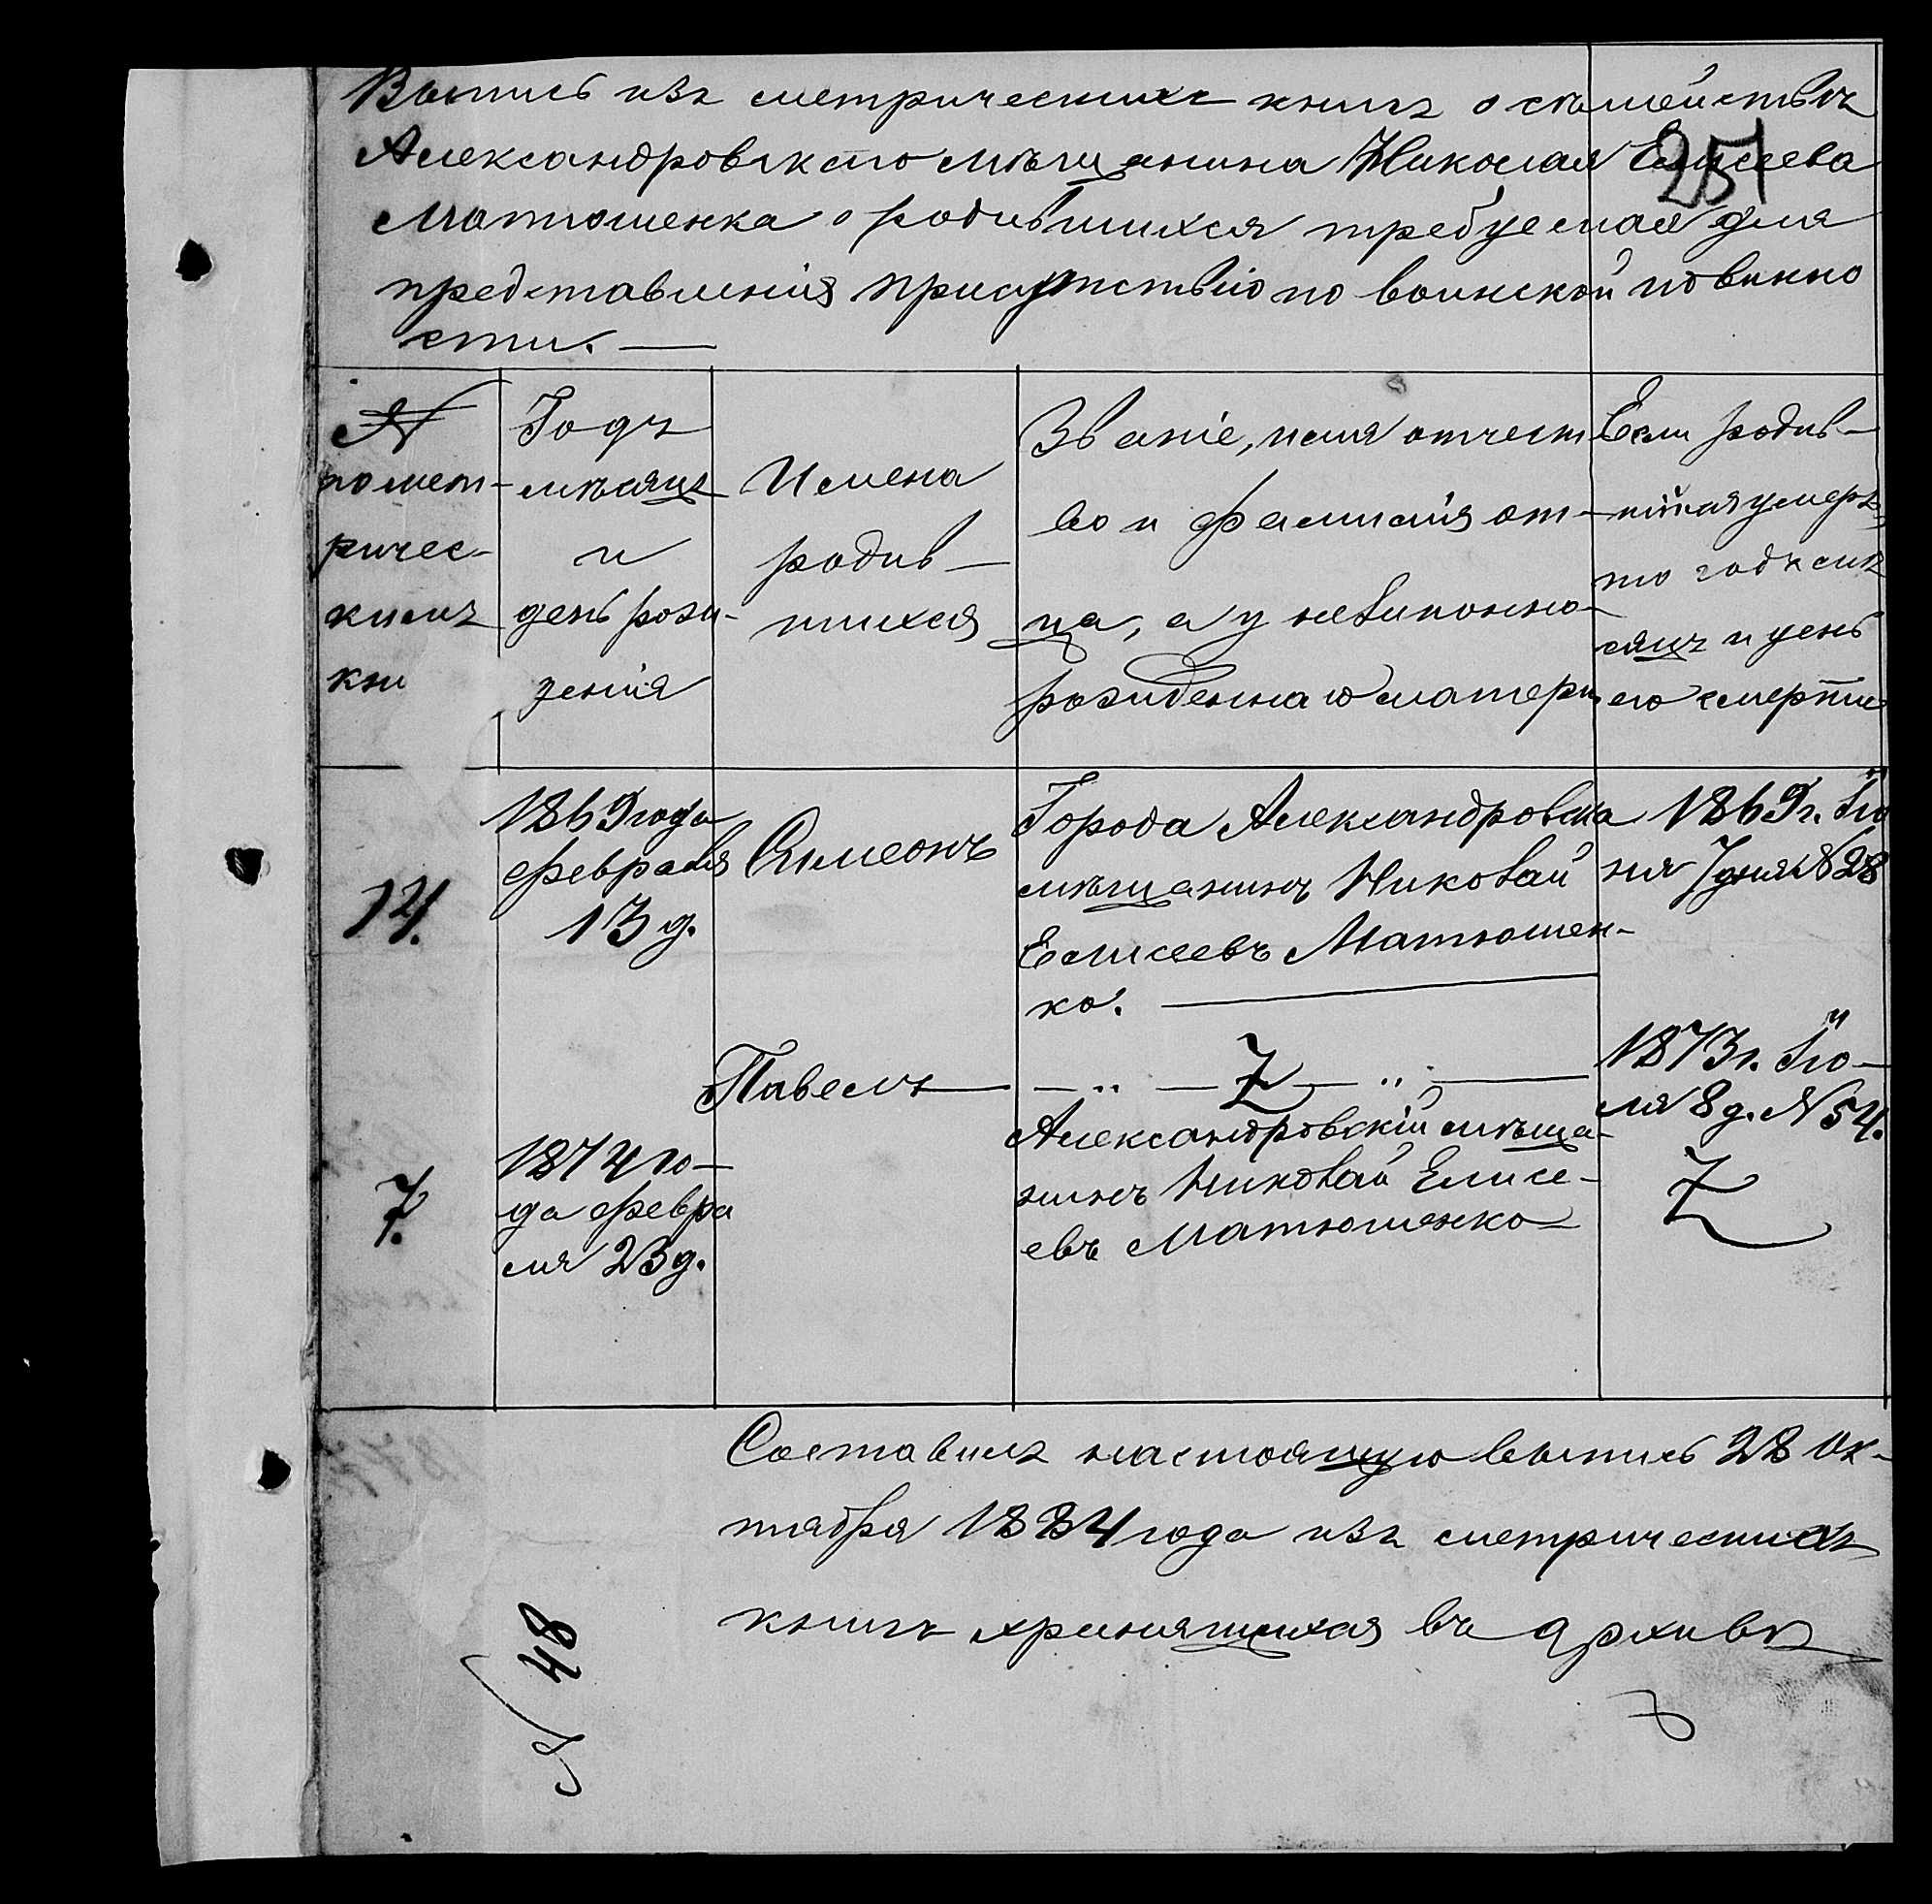 Выпись изъ метрическихъ книгъ о семействѣ
251
Александровскаго мѣщанина Николая Елисеева
Матюшенка о родившихся требуемая для
представленія присутствію по воинской повинно
сти. —
№
помет-
ричес-
кимъ
кни
Годъ
мѣсяцъ
и
день рож-
денія
Имена
родив-
шихся
Званіе, имя отчест
во и фамилія от-
ца, а у незаконно-
рожденнаго матери
Если родив-
шійся умеръ,
то годъ мѣ
сяцъ и день
его смерти
14.
1869 года
февраля
13 д.
Симеонъ
Города Александровска
мѣщанинъ Николай
Елисеевъ Матюшен-
ко. —
1869 г. Iю
ня 7 дня №28
Павелъ —
— " — Z — " —
1873 г. Iю-
ля 8 д. №54.
7.
1874 го-
да февра
ля 23 д.
Александровскій мѣща-
нинъ Николай Елисе-
евъ Матюшенко
Z
Составилъ настоящую выпись 28 Ок-
тября 1884 года изъ метрическихъ
книгъ хранящихся въ архивѣ
№ 48